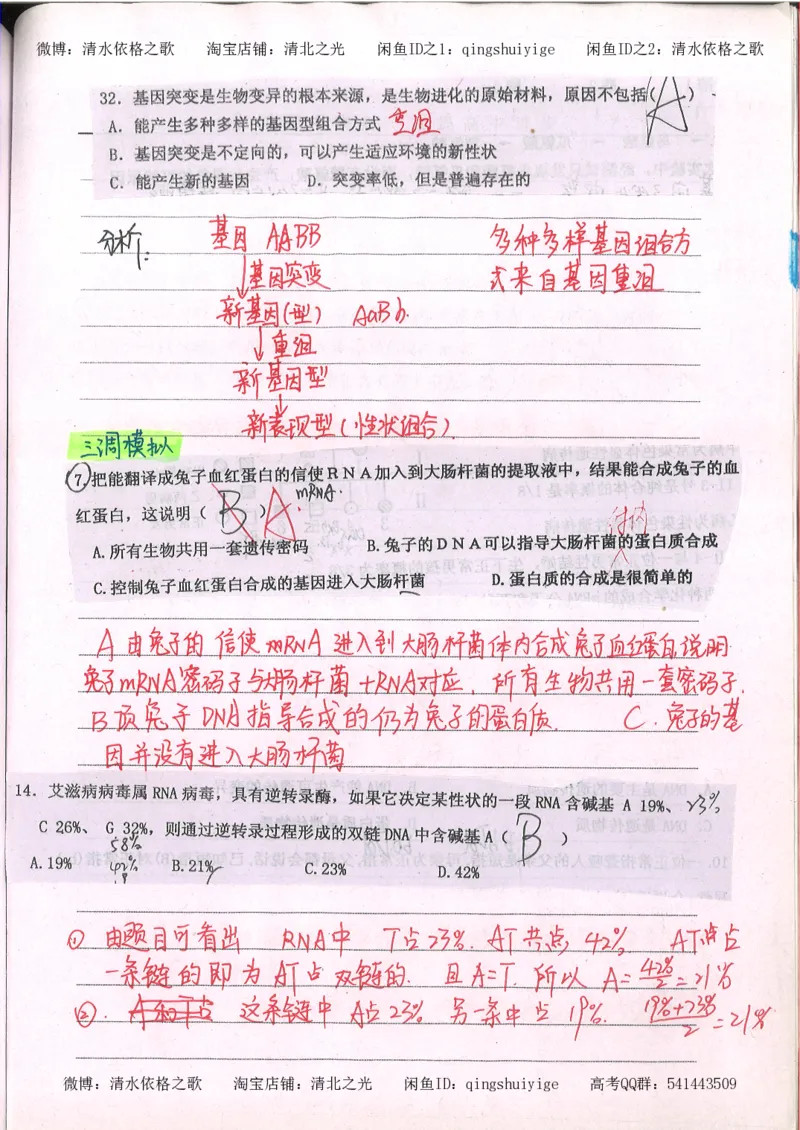 微博：清水依格之歌 淘宝店铺：清北之光 闲鱼ID之1：qingshuiyige 闲鱼ID之2：清水依格之歌
32．基因突变是生物变异的根本来源，是生物进化的原始材料，原因不包括(A)
A．能产生多种多样的基因型组合方式 重组
B．基因突变是不定向的，可以产生适应环境的新性状
C．能产生新的基因 D．突变率低，但是普遍存在的
分析： 基因 AABB 多种多样基因组合方
↓基因突变 式来自基因重组
新基因(型) AaBb.
↓重组
新基因型
↓
新表现型(性状组合)
三周模拟
7.把能翻译成兔子血红蛋白的信使RNA加入到大肠杆菌的提取液中，结果能合成兔子的血
mRNA.
红蛋白，这说明（ B ）A.
A.所有生物共用一套遗传密码 B.兔子的DNA可以指导大肠杆菌的蛋白质合成
C.控制兔子血红蛋白合成的基因进入大肠杆菌 D.蛋白质的合成是很简单的
A 由兔子的 信使mRNA 进入到大肠杆菌体内合成兔子血红蛋白,说明
兔子mRNA密码子与大肠杆菌tRNA对应，所有生物共用一套密码子.
B项兔子DNA指导合成的仍为兔子的蛋白质. C.兔子的基
因并没有进入大肠杆菌
14．艾滋病病毒属 RNA 病毒，具有逆转录酶，如果它决定某性状的一段 RNA 含碱基 A 19%、 23%
C 26%、 G 32%，则通过逆转录过程形成的双链 DNA 中含碱基 A（ B ）
58%
A.19% 42% B.21% C.23% D.42%
① 由题目可看出 RNA中 T占23%. AT共占42% AT占
一条链的即为AT占双链的. 且A=T. 所以 A=42%/2=21%
②. 这条链中 A占23% 另一条中占19%. 19%+23%/2=21%
微博：清水依格之歌 淘宝店铺：清北之光 闲鱼ID：qingshuiyige 高考QQ群：541443509